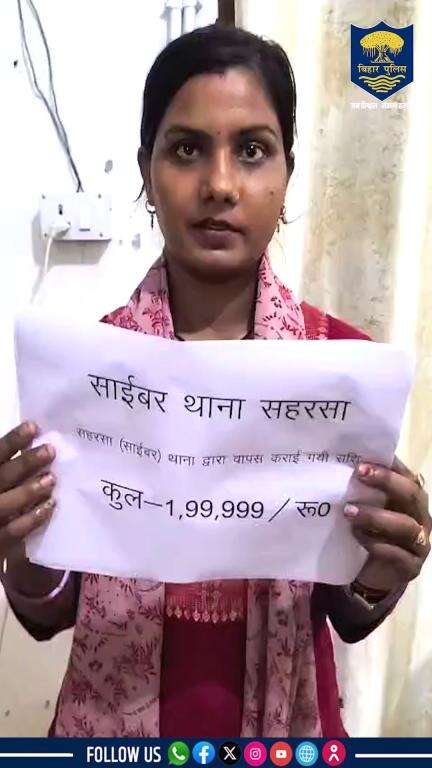 बिहार पुलिस
साईबर थाना सहरसा
सहरसा (साईबर) थाना द्वारा वापस कराई गयी राशि
कुल–1,99,999 / रू0
FOLLOW US